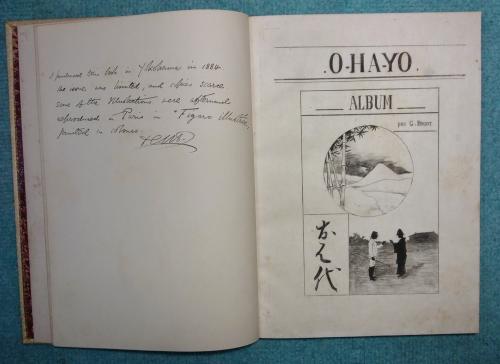 I purchased this book in Yokohama in 1884.
The issue was limited, and copies scarce
some of the illustrations were afterward
reproduced in Paris in "Figaro Illustré,
printed in colours.
.O-HA-YO.
ALBUM
par G. Bigot
お
代